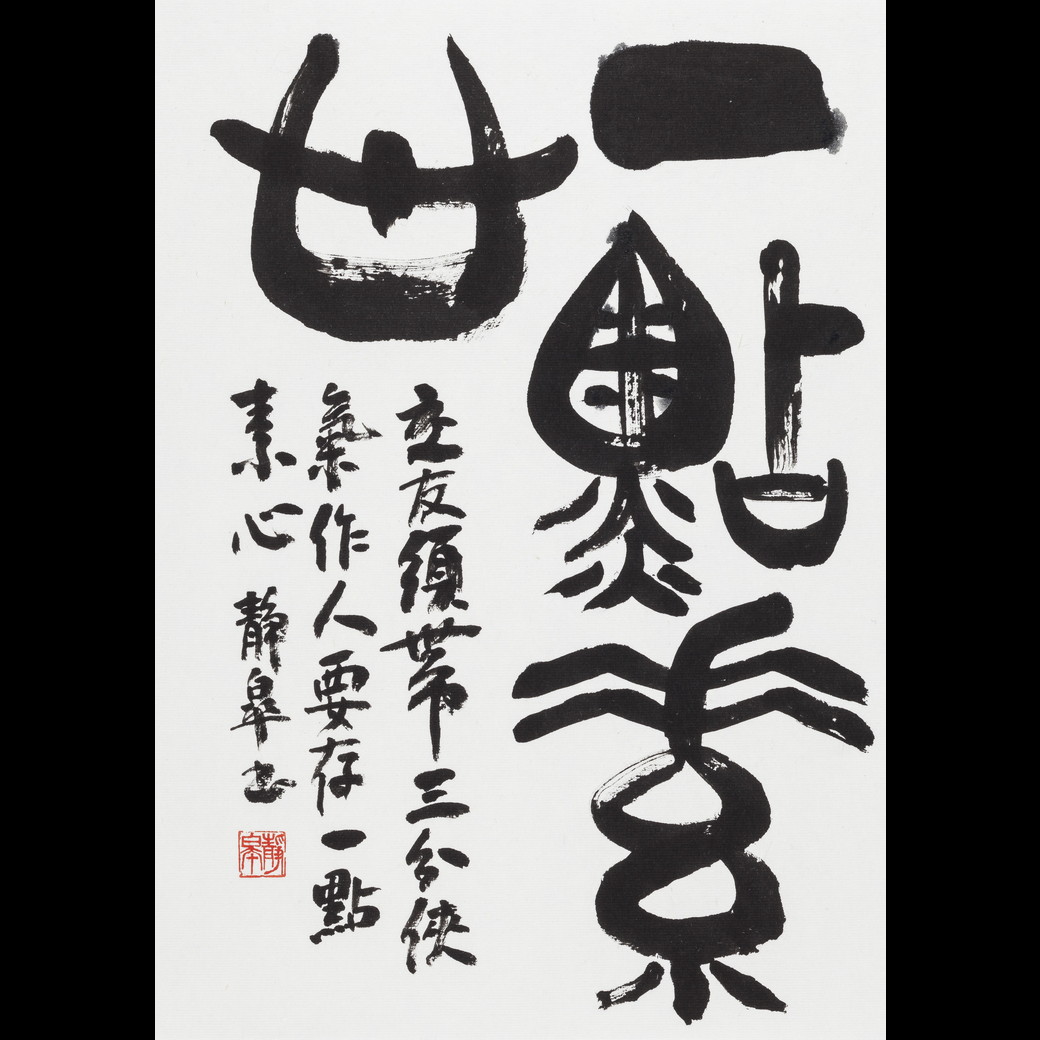 一點素
心
交友須帶三分俠
氣作人要存一點
素心 靜皋書
靜皋